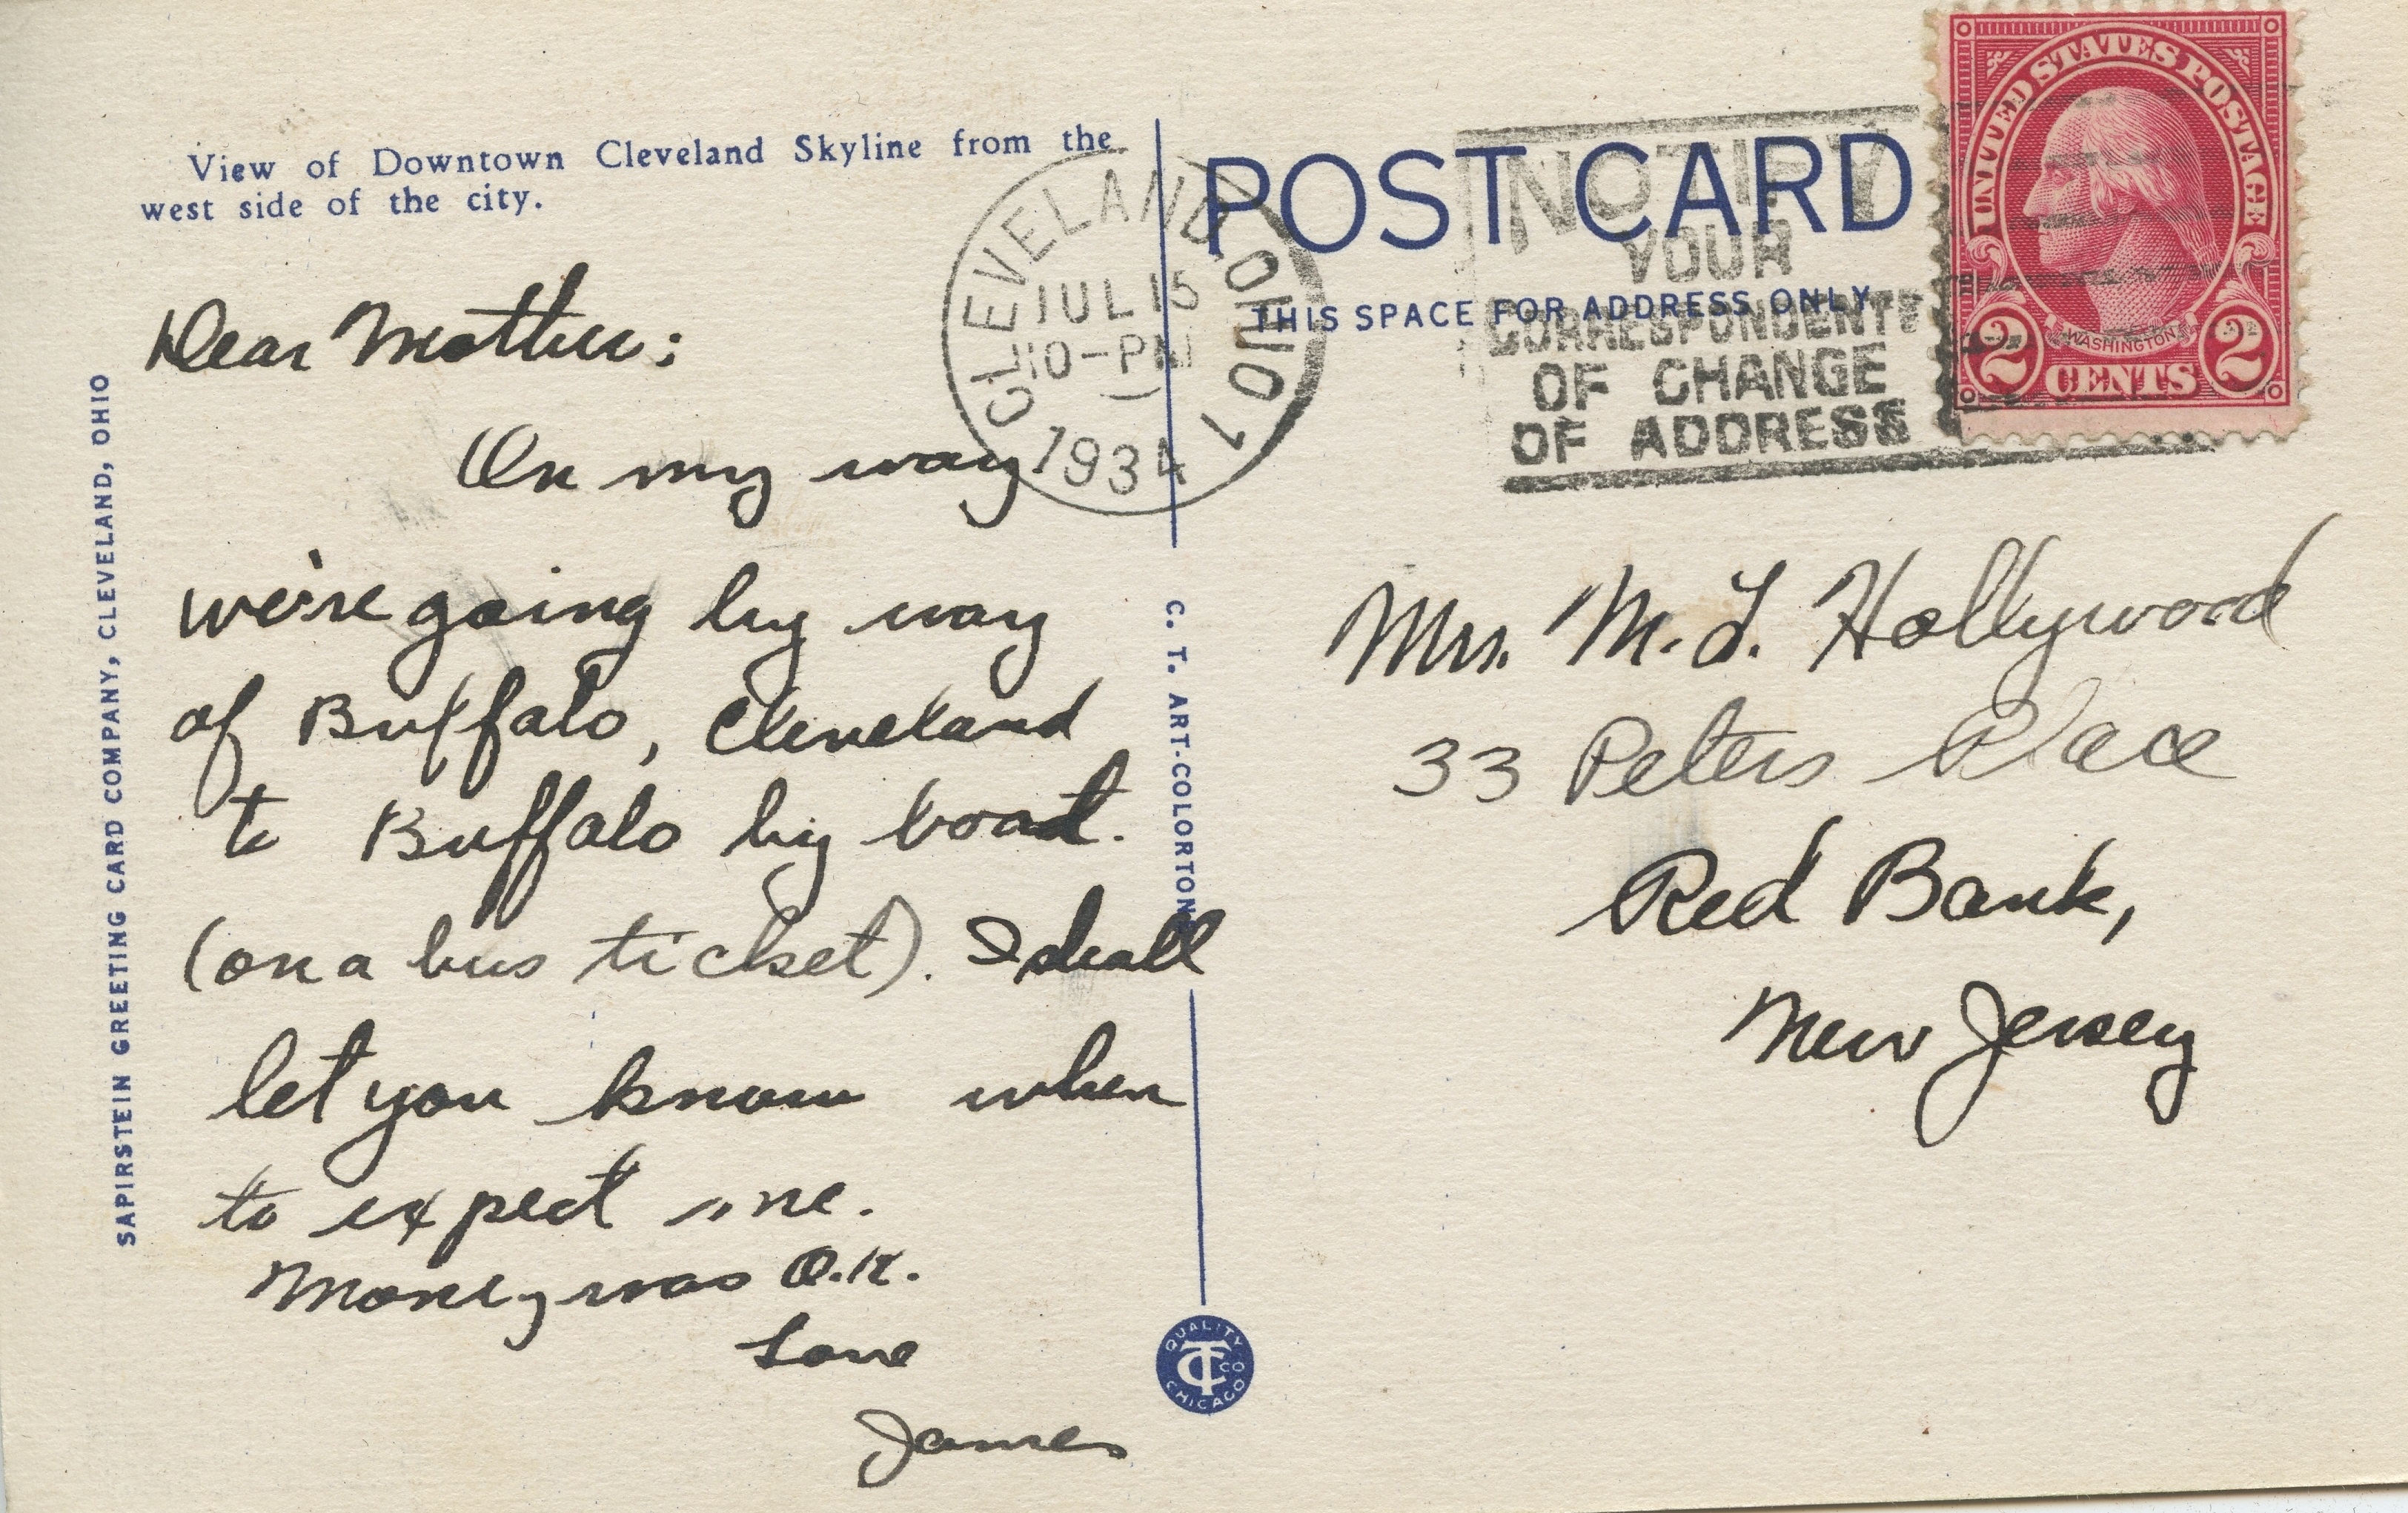 View of Downtown Cleveland Skyline from the
west side of the city.
Dear Mother:
On my way
we're going by way
of Buffalo, Cleveland
to Buffalo by boat.
(on a bus ticket). I shall
let you know when
to expect me.
Money was O.K.
Love
James
SAPIRSTEIN GREETING CARD COMPANY, CLEVELAND, OHIO
C. T. ART-COLORTONE
QUALITY
CT CO
CHICAGO
CLEVELAND, OHIO 1
JUL 15
10-PM
1934
POST CARD
THIS SPACE FOR ADDRESS ONLY
NOTIFY
YOUR
CORRESPONDENTS
OF CHANGE
OF ADDRESS
UNITED STATES POSTAGE
WASHINGTON
2 CENTS 2
Mrs. M. L. Hollywood
33 Peters Place
Red Bank,
New Jersey